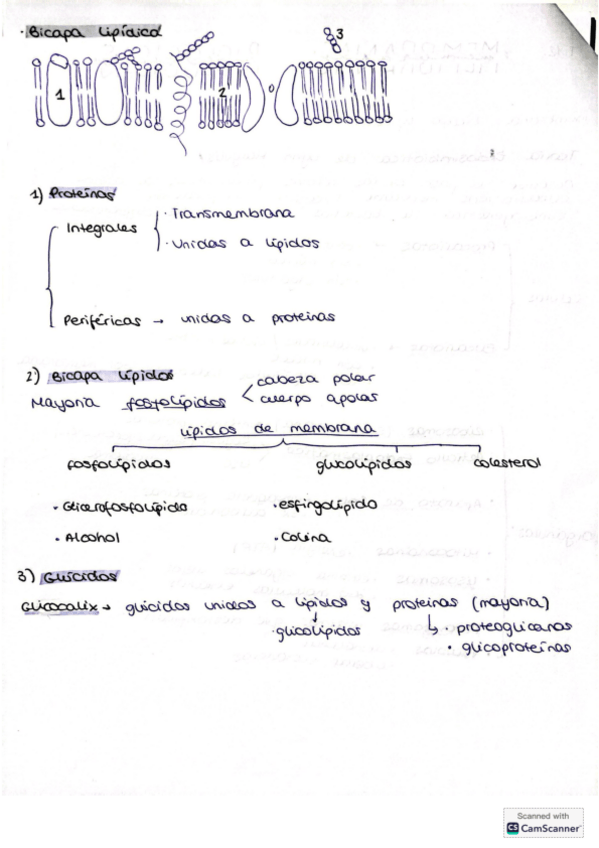 · Bicapa Lipídica
3
1
2
1) Proteínas
Integrales
· Transmembrana
· Unidas a lípidos
Periféricas → unidas a proteínas
2) Bicapa lípidos
Mayoría fosfolípidos < cabeza polar
cuerpo apolar
lípidos de membrana
fosfolípidos glucolípidos colesterol
· Glicerofosfolípido · esfingolípido
· Alcohol · Colina
3) Glúcidos
Glicocalix → glúcidos unidos a lípidos y proteínas (mayoría)
· glicolípidos ↳ · proteoglicanos
· glicoproteínas
Scanned with
CS CamScanner